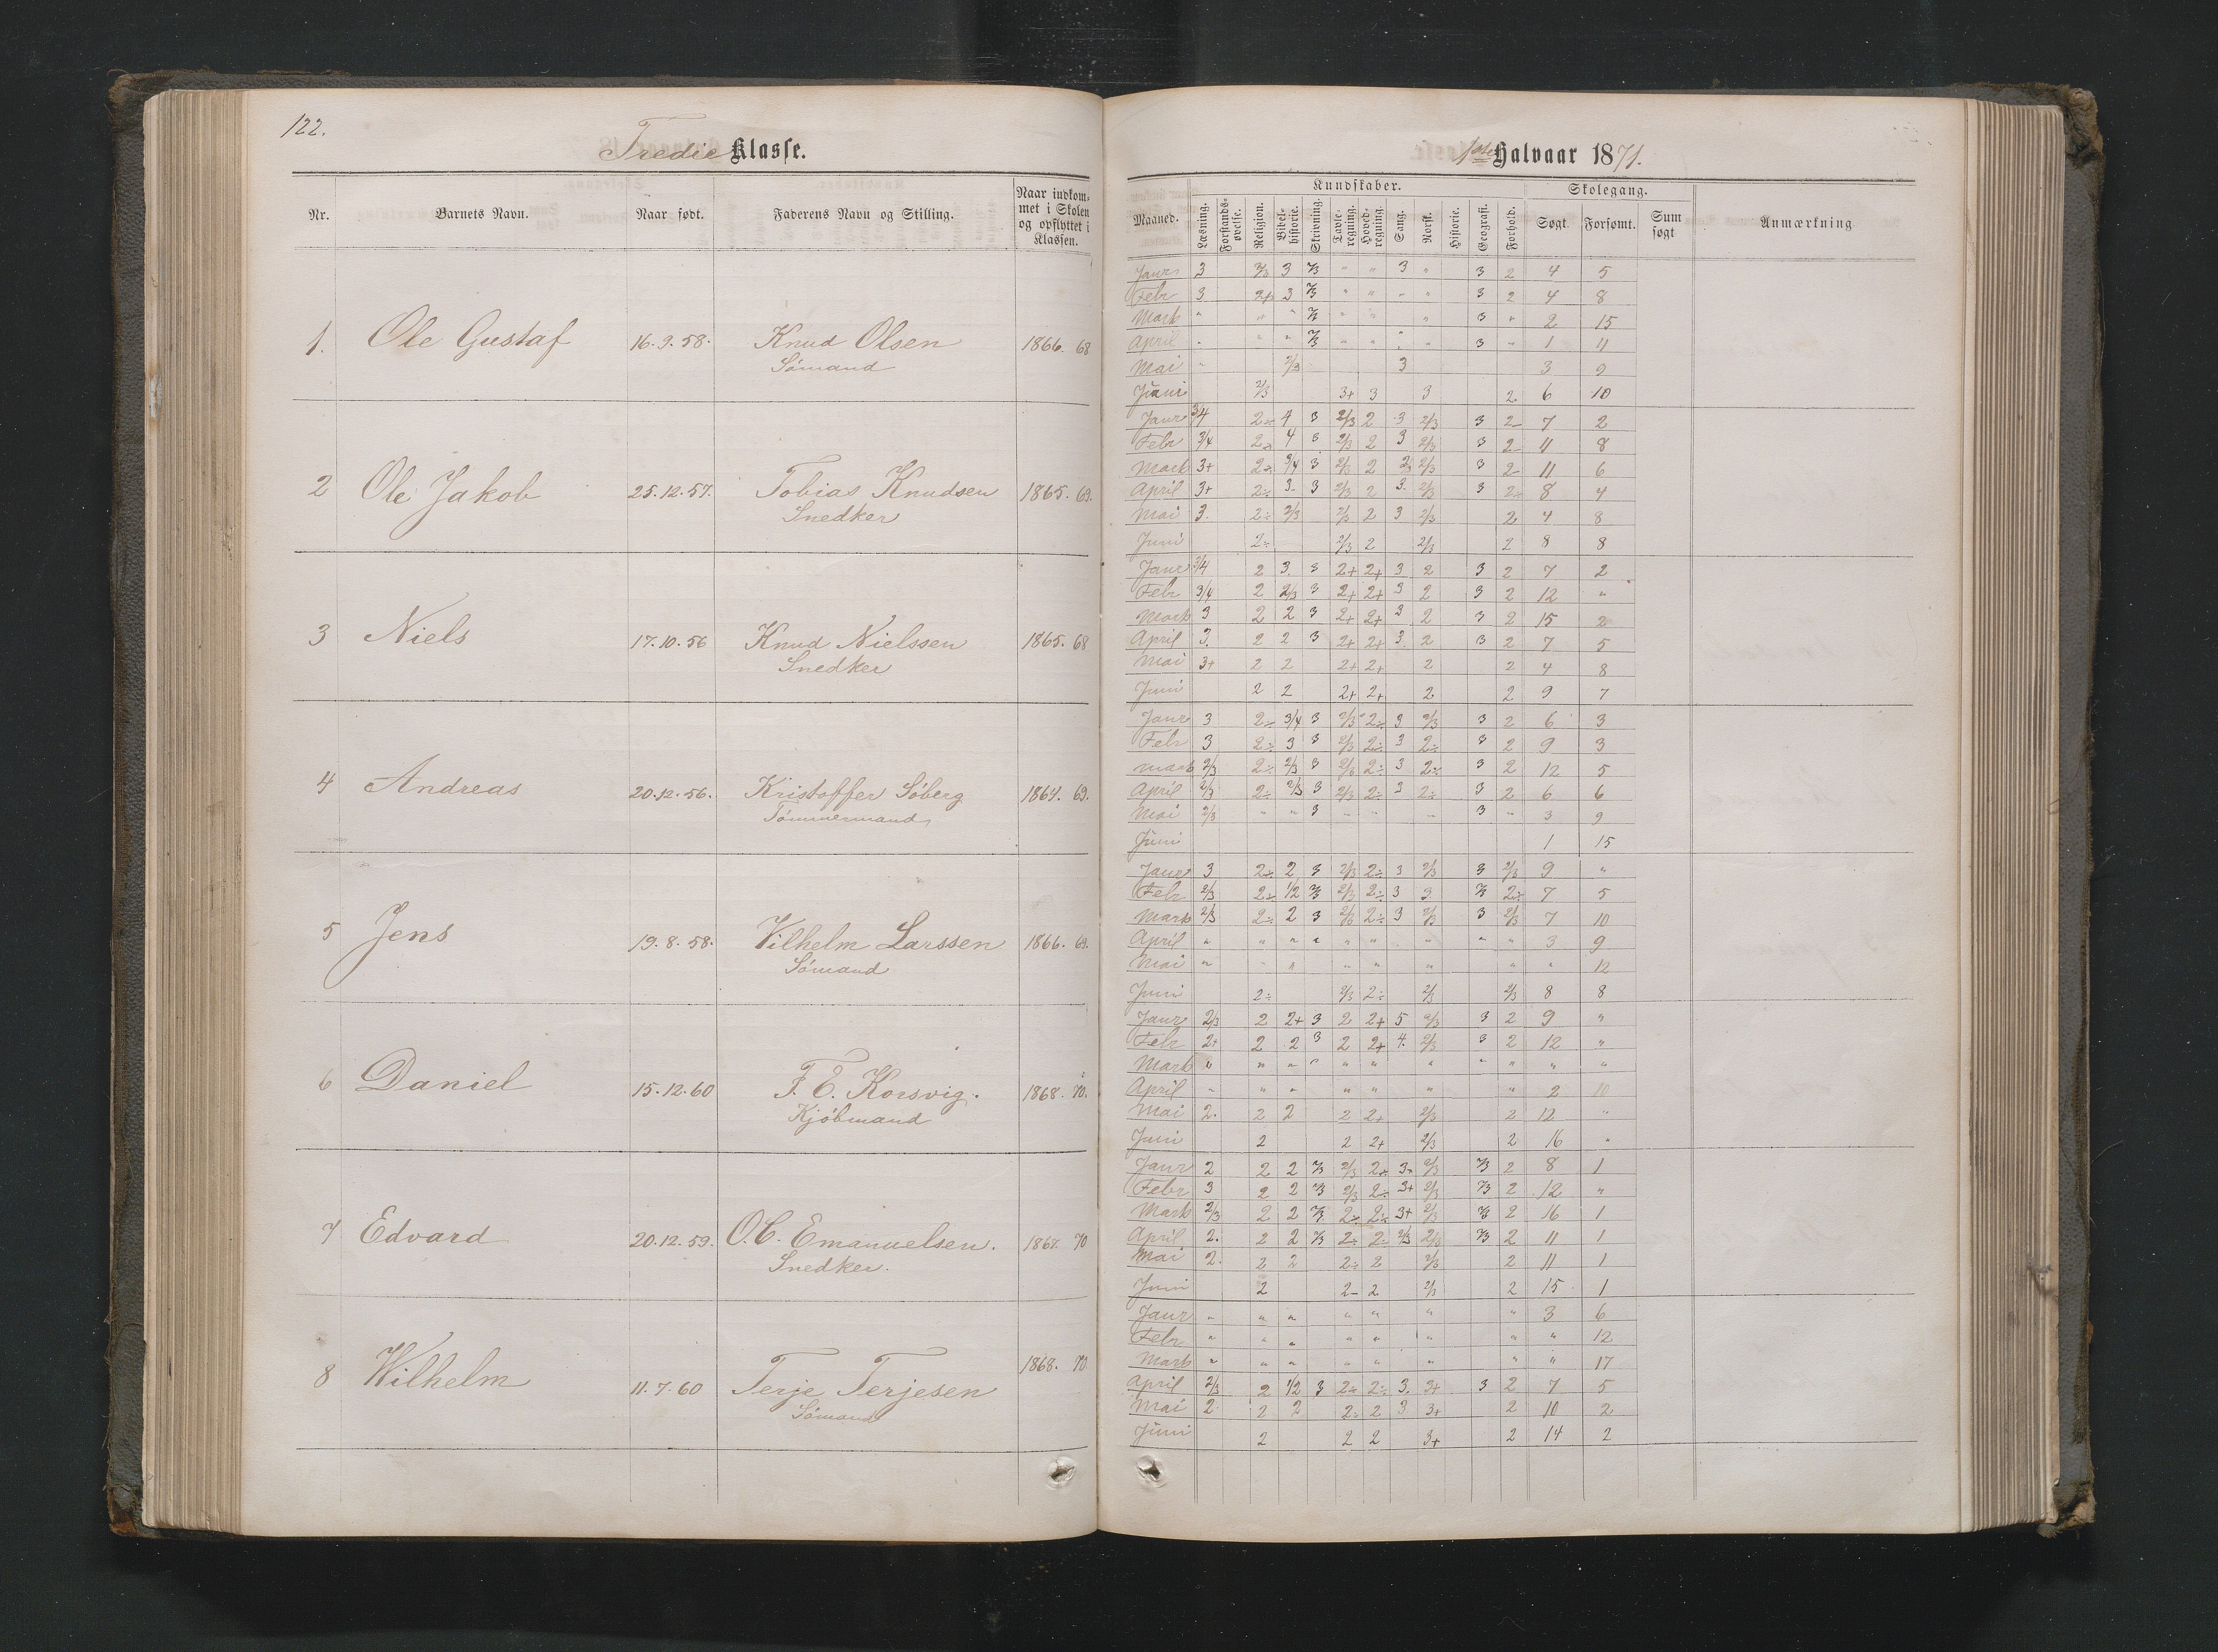 122.
Tredie Klasse.
Nr. Barnets Navn. Naar født. Faderens Navn og Stilling. Naar indkommet i Skolen og opflyttet i Klassen.
1. Ole Gustaf 16.9.58. Knud Olsen 1866. 68
Sømand
2 Ole Jakob 25.12.57. Tobias Knudsen 1865. 69.
Snedker
3 Niels 17.10.56 Knud Nielssen 1865. 68
Snedker
4 Andreas 20.12.56. Kristoffer Söberg 1864. 69.
Tømmermand
5 Jens 19.8.58. Vilhelm Larssen 1866. 69.
Sømand
6 Daniel 15.12.60 F. E. Korsvig. 1868. 70.
Kjøbmand
7 Edvard 20.12.59. O. C. Emanuelsen. 1867. 70
Snedker.
8 Wilhelm 11.7.60 Terje Terjesen 1868. 70.
Sømand
1ste Halvaar 1871.
Kundskaber. Skolegang.
Maaned. Læsning. Forstandsøvelse. Religion. Bibelhistorie. Skrivning. Tavleregning. Hovedregning. Sang. Norsk. Historie. Geografi. Forhold. Søgt. Forsømt. Sum søgt Anmærkning
Janr 3 2/3 3 2/3 " " 3 " 3 2 4 5
Febr 3 2+ 3 2/3 " " " " 3 2 4 8
Mark " " " 2/3 " " " 3 " 2 15
April " " " 2/3 " " " " 3 " 1 11
Mai " 2/3 3 3 9
Juni 2/3 3+ 3 3 2 6 10
Janr 3/4 2÷ 4 3 2/3 2 3 2/3 3 2- 7 2
Febr 3/4 2÷ 4 3 2/3 2 3 2/3 3 2- 11 8
Mark 3+ 2÷ 3/4 3 2/3 2 2/3 2/3 3 2- 11 6
April 3+ 2÷ 3- 3 2/3 2 3. 2/3 3 2÷ 8 4
Mai 3. 2÷ 2/3 2/3 2 3 2/3 2 4 8
Juni 2÷ 2/3 2 2/3 2 8 8
Janr 3/4 2 3. 3 2+ 2+ 3 2 3 2 7 2
Febr 3/4 2 2/3 3 2+ 2+ 3 2 3 2 12 "
Mark 3 2 2 3 2+ 2+ 3 2 3 2 15 2
April 3. 2 2 3 2+ 2+ 3. 2 3 2 7 5
Mai 3+ 2 2 2+ 2+ 2 2 4 8
Juni 2 2 2+ 2+ 2 2 9 7
Janr 3 2÷ 3/4 3 2/3 2÷ 3 2/3 3 2 6 3
Febr 3 2÷ 3 3 2/3 2÷ 3 2÷ 3 2 9 3
Mark 2/3 2÷ 2/3 3 2/3 2÷ 3 2÷ 3 2 12 5
April 2/3 2÷ 2/3 3 2/3 2÷ 3 2÷ 3 2 6 6
Mai 2/3 " " 3 " " " 3 " 3 9
Juni 1 15
Janr 3 2÷ 2 3 2/3 2÷ 3 2/3 3 2/3 9 "
Febr 2/3 2÷ 1/2 2/3 2/3 2÷ 3 3 2/3 2÷ 7 5
Mark 2/3 2÷ 2 3 2/3 2÷ 3 2/3 3 2/3 7 10
April " " " " " " " " " 3 9
Mai " " " " " " " " 12
Juni 2÷ 2/3 2÷ 2/3 2/3 8 8
Janr 2/3 2 2+ 3 2 2+ 5 2/3 3 2 9 "
Febr 2+ 2 2 3 2 2+ 4. 2/3 3 2 12 "
Mark " " " " " " " " " " "
April " " " " " " " 2 10
Mai 2. 2 2 2 2+ 2/3 2 12 "
Juni 2 2 2+ 2/3 2 16 "
Janr 2 2 2 2/3 2/3 2÷ 3÷ 2/3 2/3 2 8 1
Febr 3 2 2 2/3 2/3 2÷ 3+ 2/3 2/3 2 12 "
Mark 2/3 2 2 2/3 2÷ 2÷ 3+ 2/3 2/3 2 16 1
April 2. 2 2 2/3 2÷ 2÷ 2/3 2/3 2/3 2 11 1
Mai 2. 2 2 2÷ 2 2/3 2 11 1
Juni 2 2- 2 2/3 2 15 1
Janr " " " " " " " 3 6
Febr " " " " " " " " 12
Mark " " " " " " " " 17
April 2/3 2 1/2 3 2÷ 2÷ 3. 3+ 3 2 7 5
Mai 2 2 2 2÷ 2 3 3+ 2 10 2
Juni 2 2 2 3+ 2 14 2